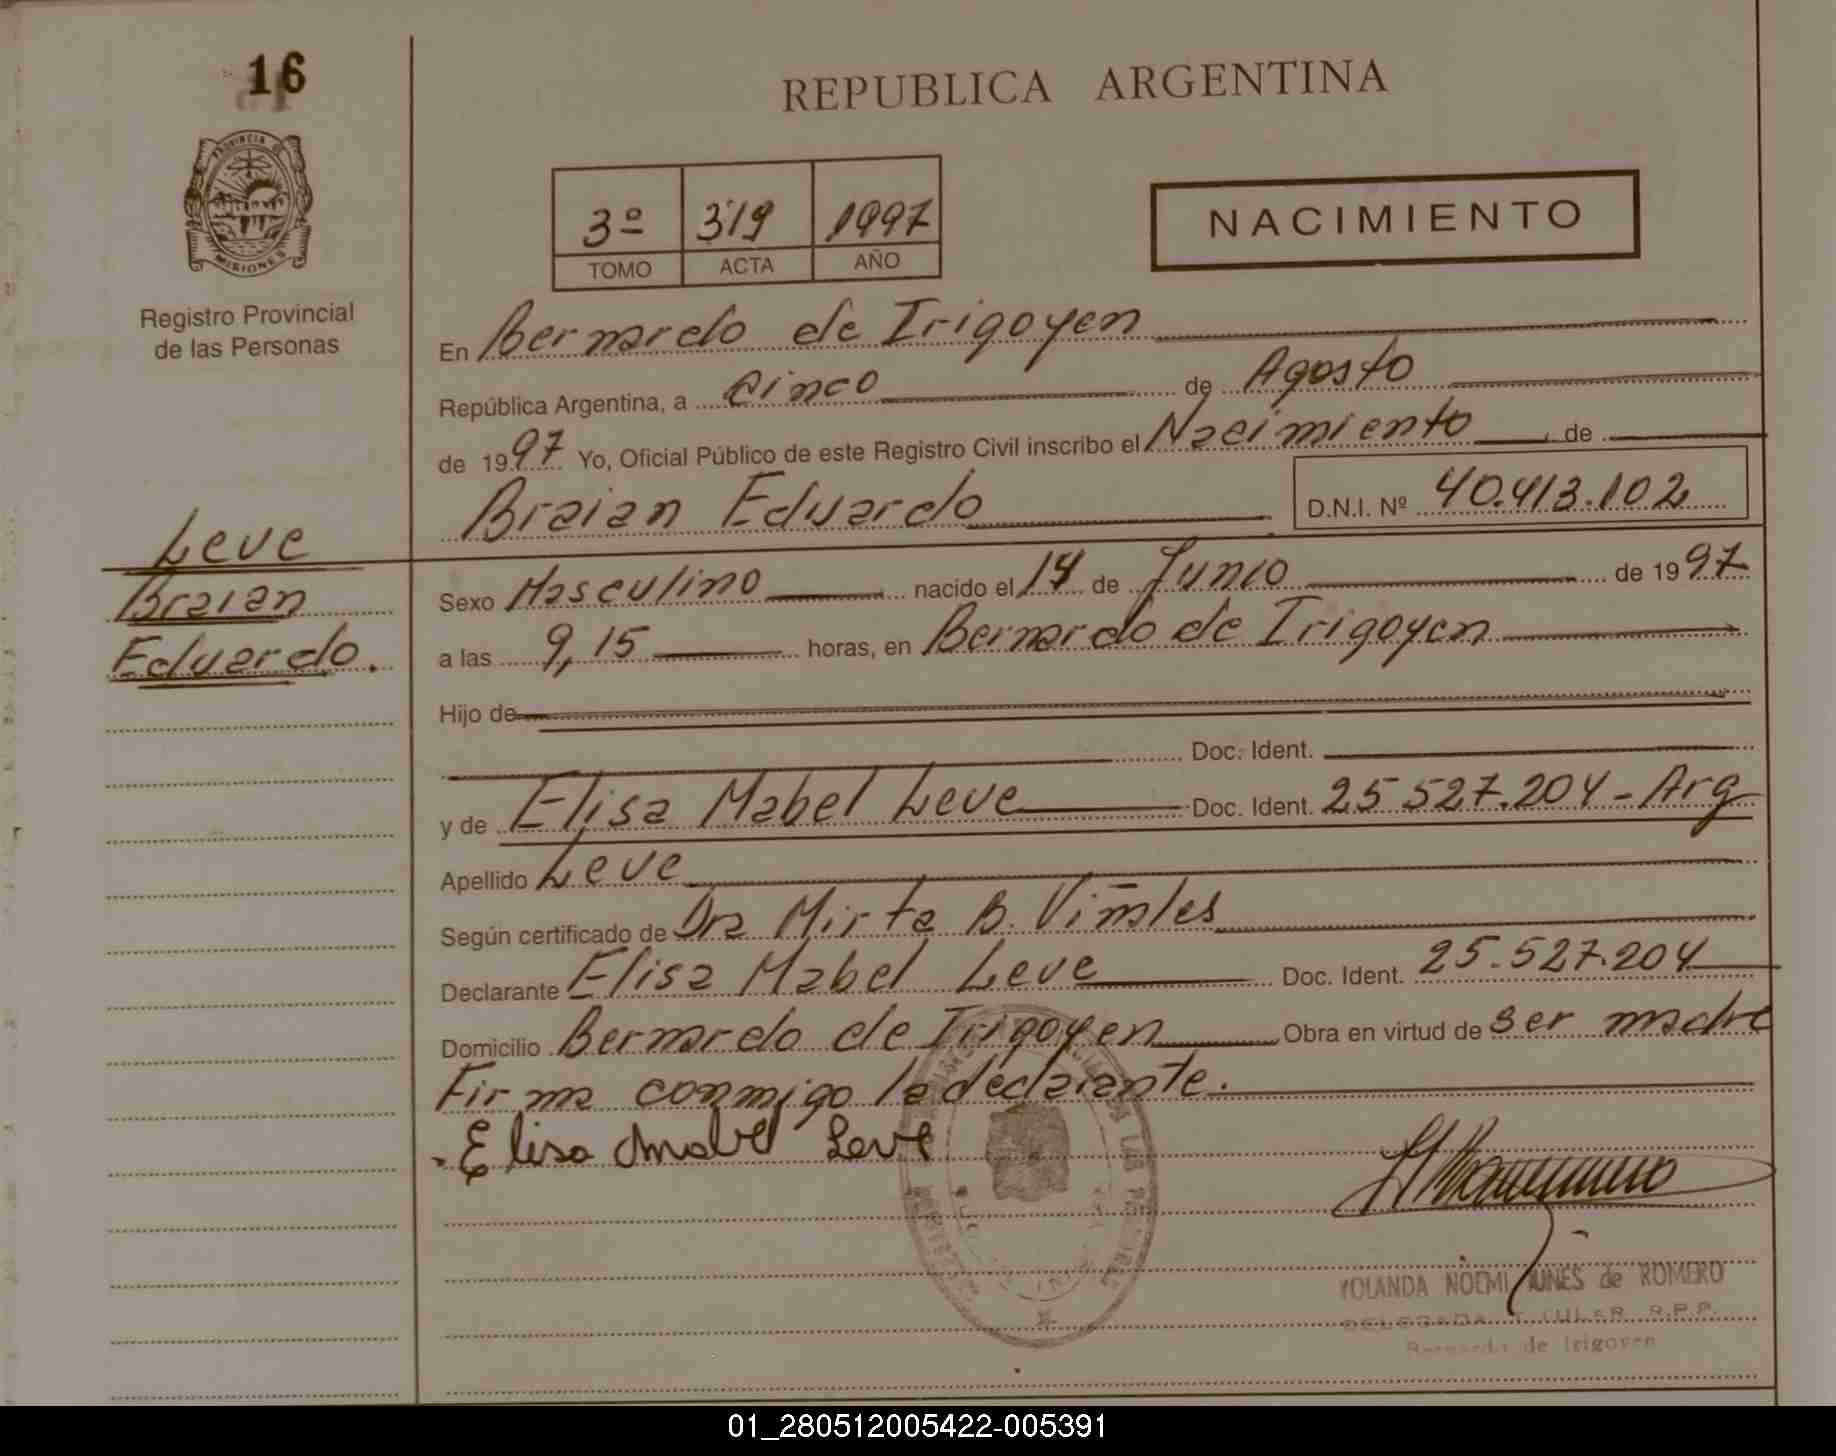 16
REPUBLICA ARGENTINA
PROVINCIA DE
MISIONES
Registro Provincial
de las Personas
3º 319 1997
TOMO ACTA AÑO
NACIMIENTO
En Bernardo de Irigoyen
República Argentina, a cinco de Agosto
de 1997 Yo, Oficial Público de este Registro Civil inscribo el Nacimiento de
Braian Eduardo D.N.I. Nº 40.413.102
Leve
Braian
Eduardo.
Sexo Masculino nacido el 14 de Junio de 1997
a las 9,15 horas, en Bernardo de Irigoyen
Hijo de
Doc. Ident.
y de Elisa Mabel Leve Doc. Ident. 25 527.204 - Arg
Apellido Leve
Según certificado de Dra Mirta B. Viñales
Declarante Elisa Mabel Leve Doc. Ident. 25.527.204
Domicilio Bernardo de Irigoyen Obra en virtud de ser madre
Firma conmigo la declarante.
Elisa Mabel Leve
YOLANDA NOEMI de ROMERO
DELEGADA TITULAR R.P.P.
Bernardo de Irigoyen
01_280512005422-005391